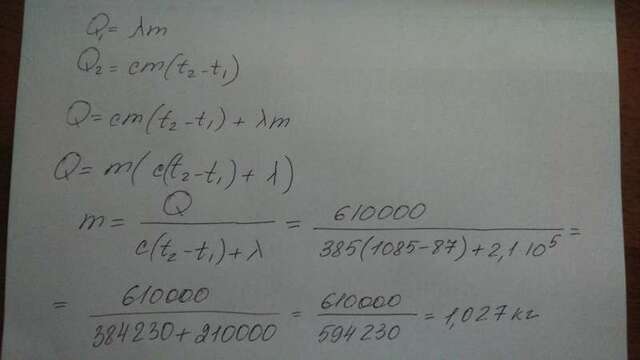 Q₁= λm
Q₂= cm(t₂-t₁)
Q=cm(t₂-t₁)+λm
Q=m(c(t₂-t₁)+λ)
m= Q / c(t₂-t₁)+λ = 610000 / 385(1085-87)+2,1 10⁵ =
= 610000 / 384230+210000 = 610000 / 594230 = 1,027кг